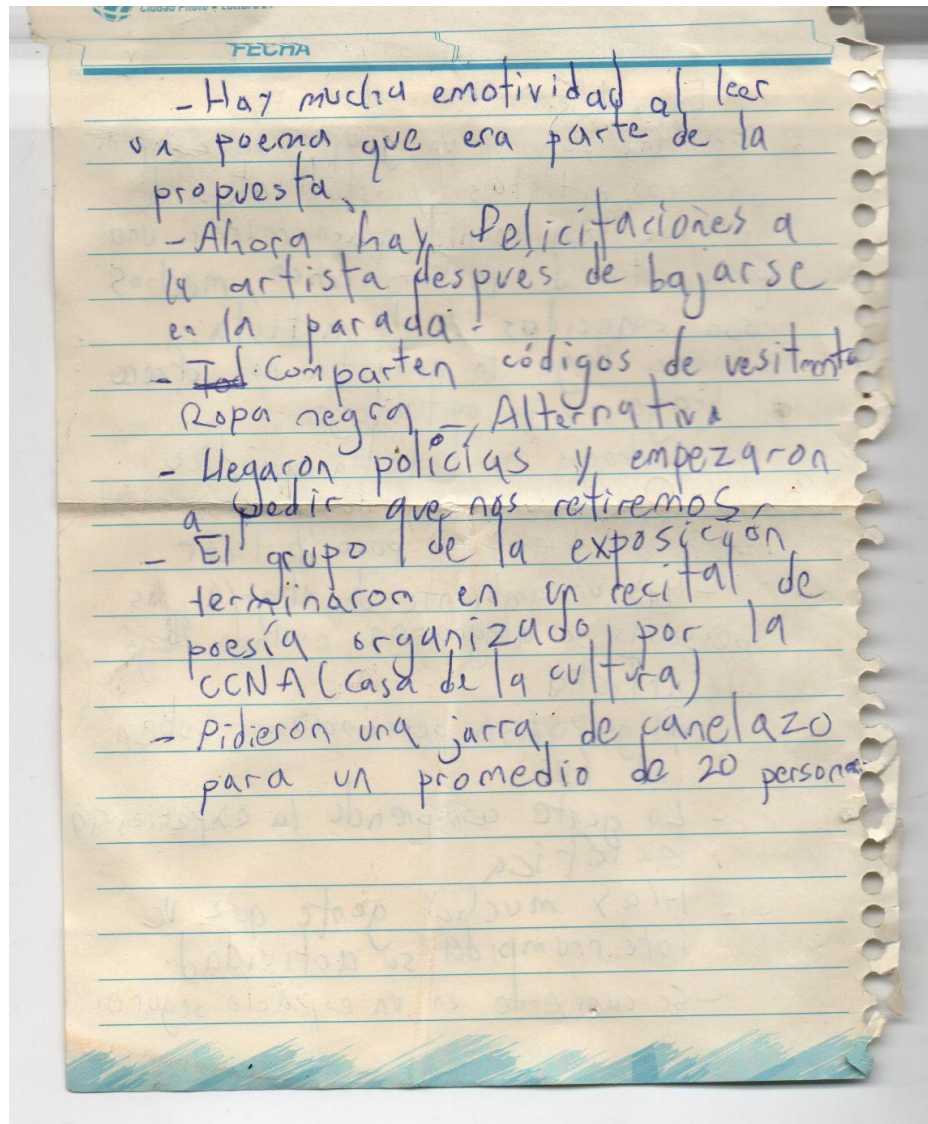 Ciudad Piloto y Cultura
FECHA
- Hay mucha emotividad al leer
un poema que era parte de la
propuesta.
- Ahora hay felicitaciones a
la artista después de bajarse
en la parada.
- Tod Comparten códigos de vesitmenta
Ropa negra - Alternativa
- Llegaron policías y empezaron
a pedir que nos retiremos.
- El grupo de la exposición
terminaron en un recital de
poesía organizado por la
CCNA (casa de la cultura)
- Pidieron una jarra de canelazo
para un promedio de 20 personas